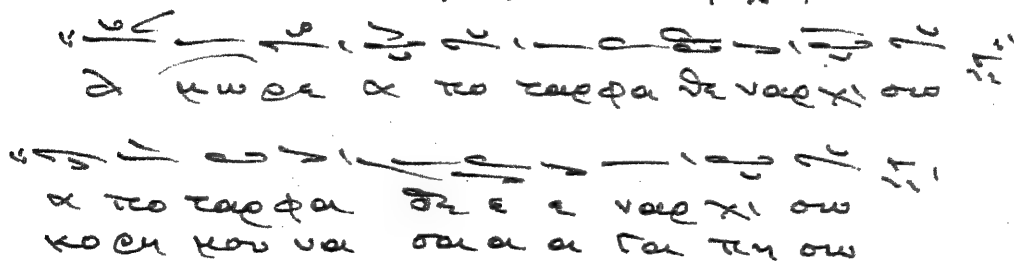 α μωρε α πο ταρφα θε ναρχι σω
α πο ταρφα θε ε ε ναρχι σω
κορη μου να σα α α γα πη σω